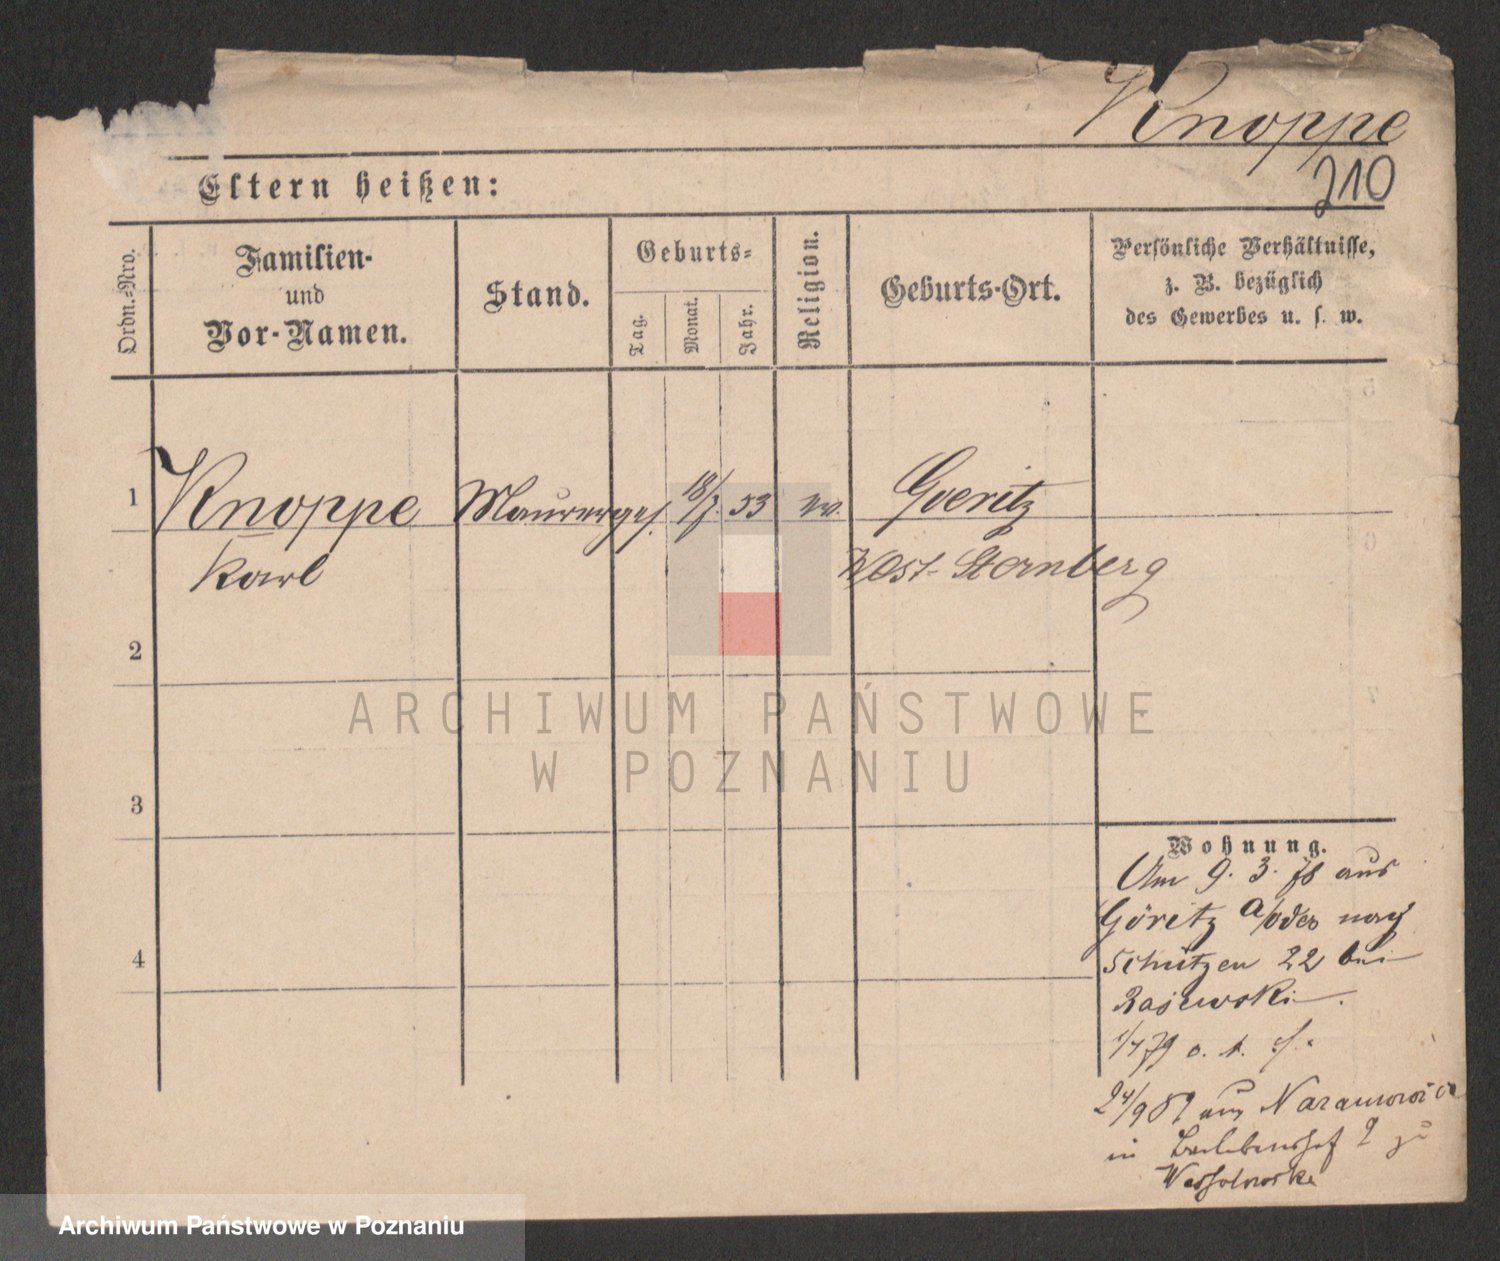 Knoppe
210
Eltern heißen:
Ordn.-Nro.
Familien-
und
Vor-Namen.
Stand.
Geburts-
Tag.
Monat.
Jahr.
Religion.
Geburts-Ort.
Persönliche Verhältnisse,
z. B. bezüglich
des Gewerbes u. s. w.
1
Knoppe Maurerges. 18/7. 53 ev. Goeritz
Karl
West-Sternberg
2
3
4
Wohnung.
Am 9. 3. 78 aus
Göritz a/oder nach
Schützen 22 bei
Rajewski.
1/4 79 o. A. f.
24/9 89 aus Naramowice
in 2 zu
ARCHIWUM PAŃSTWOWE
W POZNANIU
Archiwum Państwowe w Poznaniu